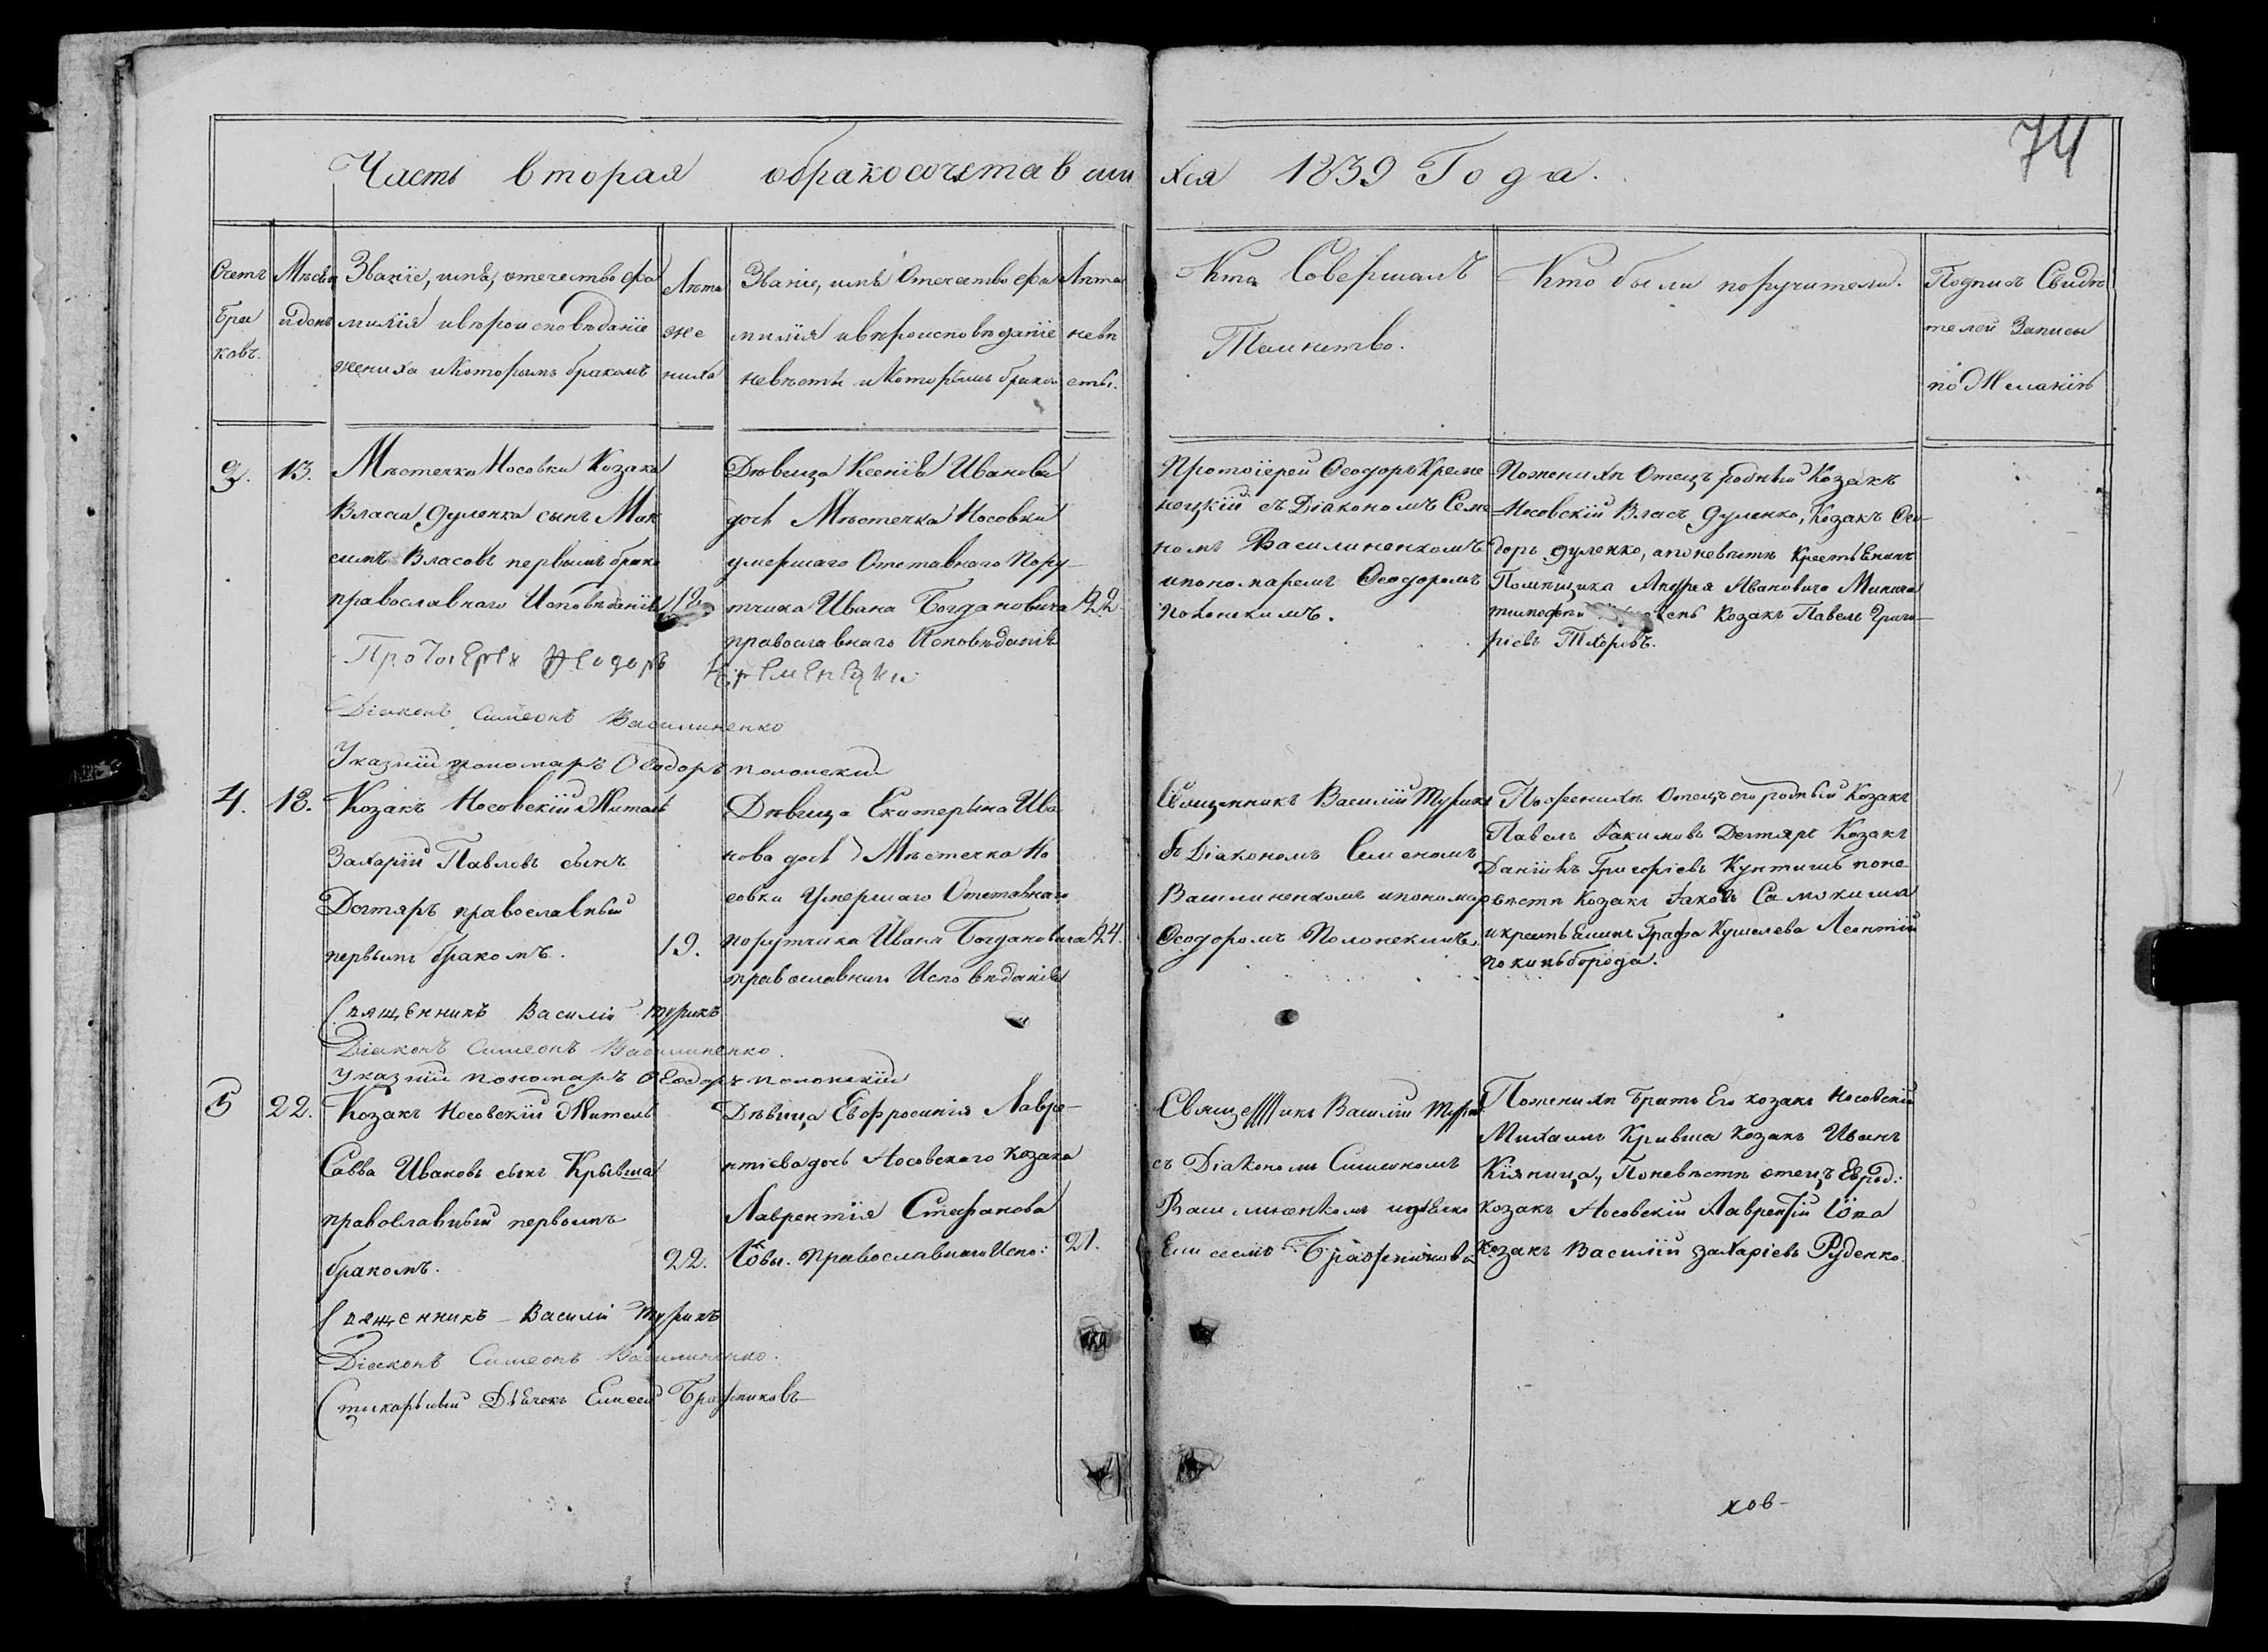 74
Часть вторая обракосочетавши хся 1839 Года.
Счетъ браковъ.
Мѣсяцъ и день
Званіе, имя, отечество фа
милія ивѣроисповѣданіе
жениха икоторымъ бракомъ
Лѣта
же
ниха
Званіе, имя Отечество фа
милія ивѣроисповѣданіе
невѣсты икоторымъ бракомъ
Лѣта
невѣ
сты.
Кто Совершалъ
Таинство.
Кто были поручители.
Подпись Свидѣ
телей Записи
по Желанію
3. 13.
Мѣстечка Носовки Козака
Власа Дуленка сынъ Мак
симъ Власовъ первымъ брако
православнаго Исповѣданія
Дѣвица Ксенія Иванова
дочь Мѣстечка Носовки
умершаго Отставнаго Пору-
тчика Ивана Богдановича 22
православнаго Исповѣданія
Протоіерей Ѳеодоръ Креме
нецкій съ Діакономъ Семе
номъ Василиненкомъ
ипономаремъ Ѳеодоромъ
Полонскимъ.
Поженихѣ Отецъ родный Козакъ
Носовскій Власъ Дуленко, Козакъ Ѳео-
доръ Дуленко, а поневѣстѣ Крестьянинъ
Помѣщика Андрея Ивановича
Козакъ Павелъ Григо-
ріевъ Тхоровъ.
Протоіерей Ѳеодоръ Кременецкій
Діаконъ Симеонъ Василиненко
Указній пономаръ Ѳеодоръ полонскій
4. 18.
Козакъ Носовскій Житель
Захарій Павловъ сынъ
Дегтяръ православный
первымъ бракомъ. 19.
Дѣвица Екатерина Ива
нова дочь Мѣстечка Но
совки Умершаго Отставнаго
порутчика Ивана Богдановича 24.
православнаго Исповѣданія
Священникъ Василій Турикъ
съ Діакономъ Семеномъ
Василиненкомъ ипономаре
Ѳеодоромъ Полонскимъ.
Поженихѣ Отецъ его родный Козакъ
Павелъ Іакимовъ Дегтяръ Козакъ
Даніилъ Григоріевъ Кунтишъ поне
вѣстѣ Козакъ Іаковъ Самокиша
икрестьянинъ Графа Кушелева Леонтій
покиньборода.
Священникъ Василій Турикъ
Діаконъ Симеонъ Василиненко.
Указній пономаръ Ѳеодоръ полонскій
5 22.
Козакъ Носовскій Житель
Савва Ивановъ сынъ Крывша
православный первымъ
бракомъ. 22.
Дѣвица Евфросинія Лавре-
нтіева дочь Носовскаго козака
Лаврентія Стефанова
Іовы. Православнаго Испо: 21.
Священникъ Василій Турикъ
съ Діакономъ Симеономъ
Василиненкомъ идьячко
Елисеемъ Бражниковы
Поженихѣ Братъ Его козакъ Носовскій
Михаилъ Кривша козакъ Иванъ
Кіяница, Поневѣстѣ отецъ Ея род:
козакъ Носовскій Лаврентій Іопа
козакъ Василій Захаріевъ Руденко.
Священникъ Василій Турикъ
Діаконъ Симеонъ Василиненко.
Стихарный Дьячокъ Елисей Бражниковъ
ков-